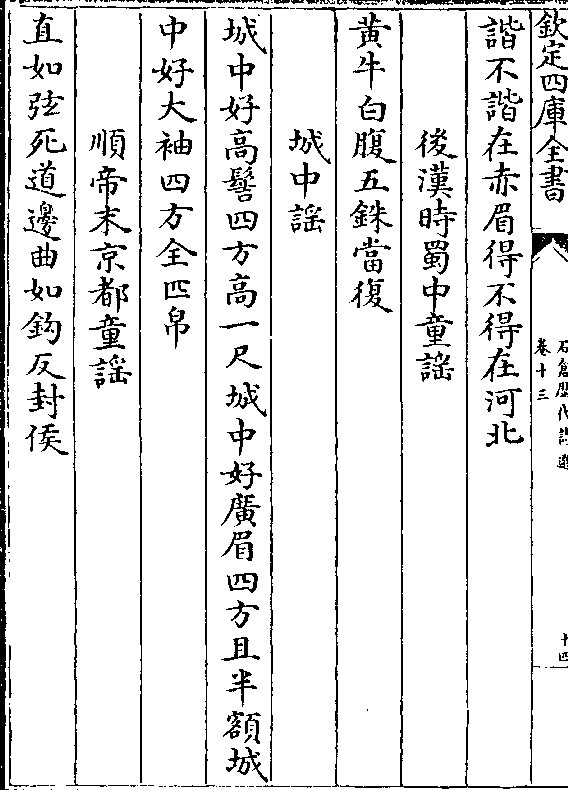 欽定四庫全書
石倉歷代詩選
卷十三
十四
諧不諧在赤眉得不得在河北
後漢時蜀中童謡
黄牛白腹五銖當復
城中謡
城中好高髻四方高一尺城中好廣眉四方且半額城
中好大袖四方全匹帛
順帝末京都童謡
直如弦死道邊曲如鈎反封侯